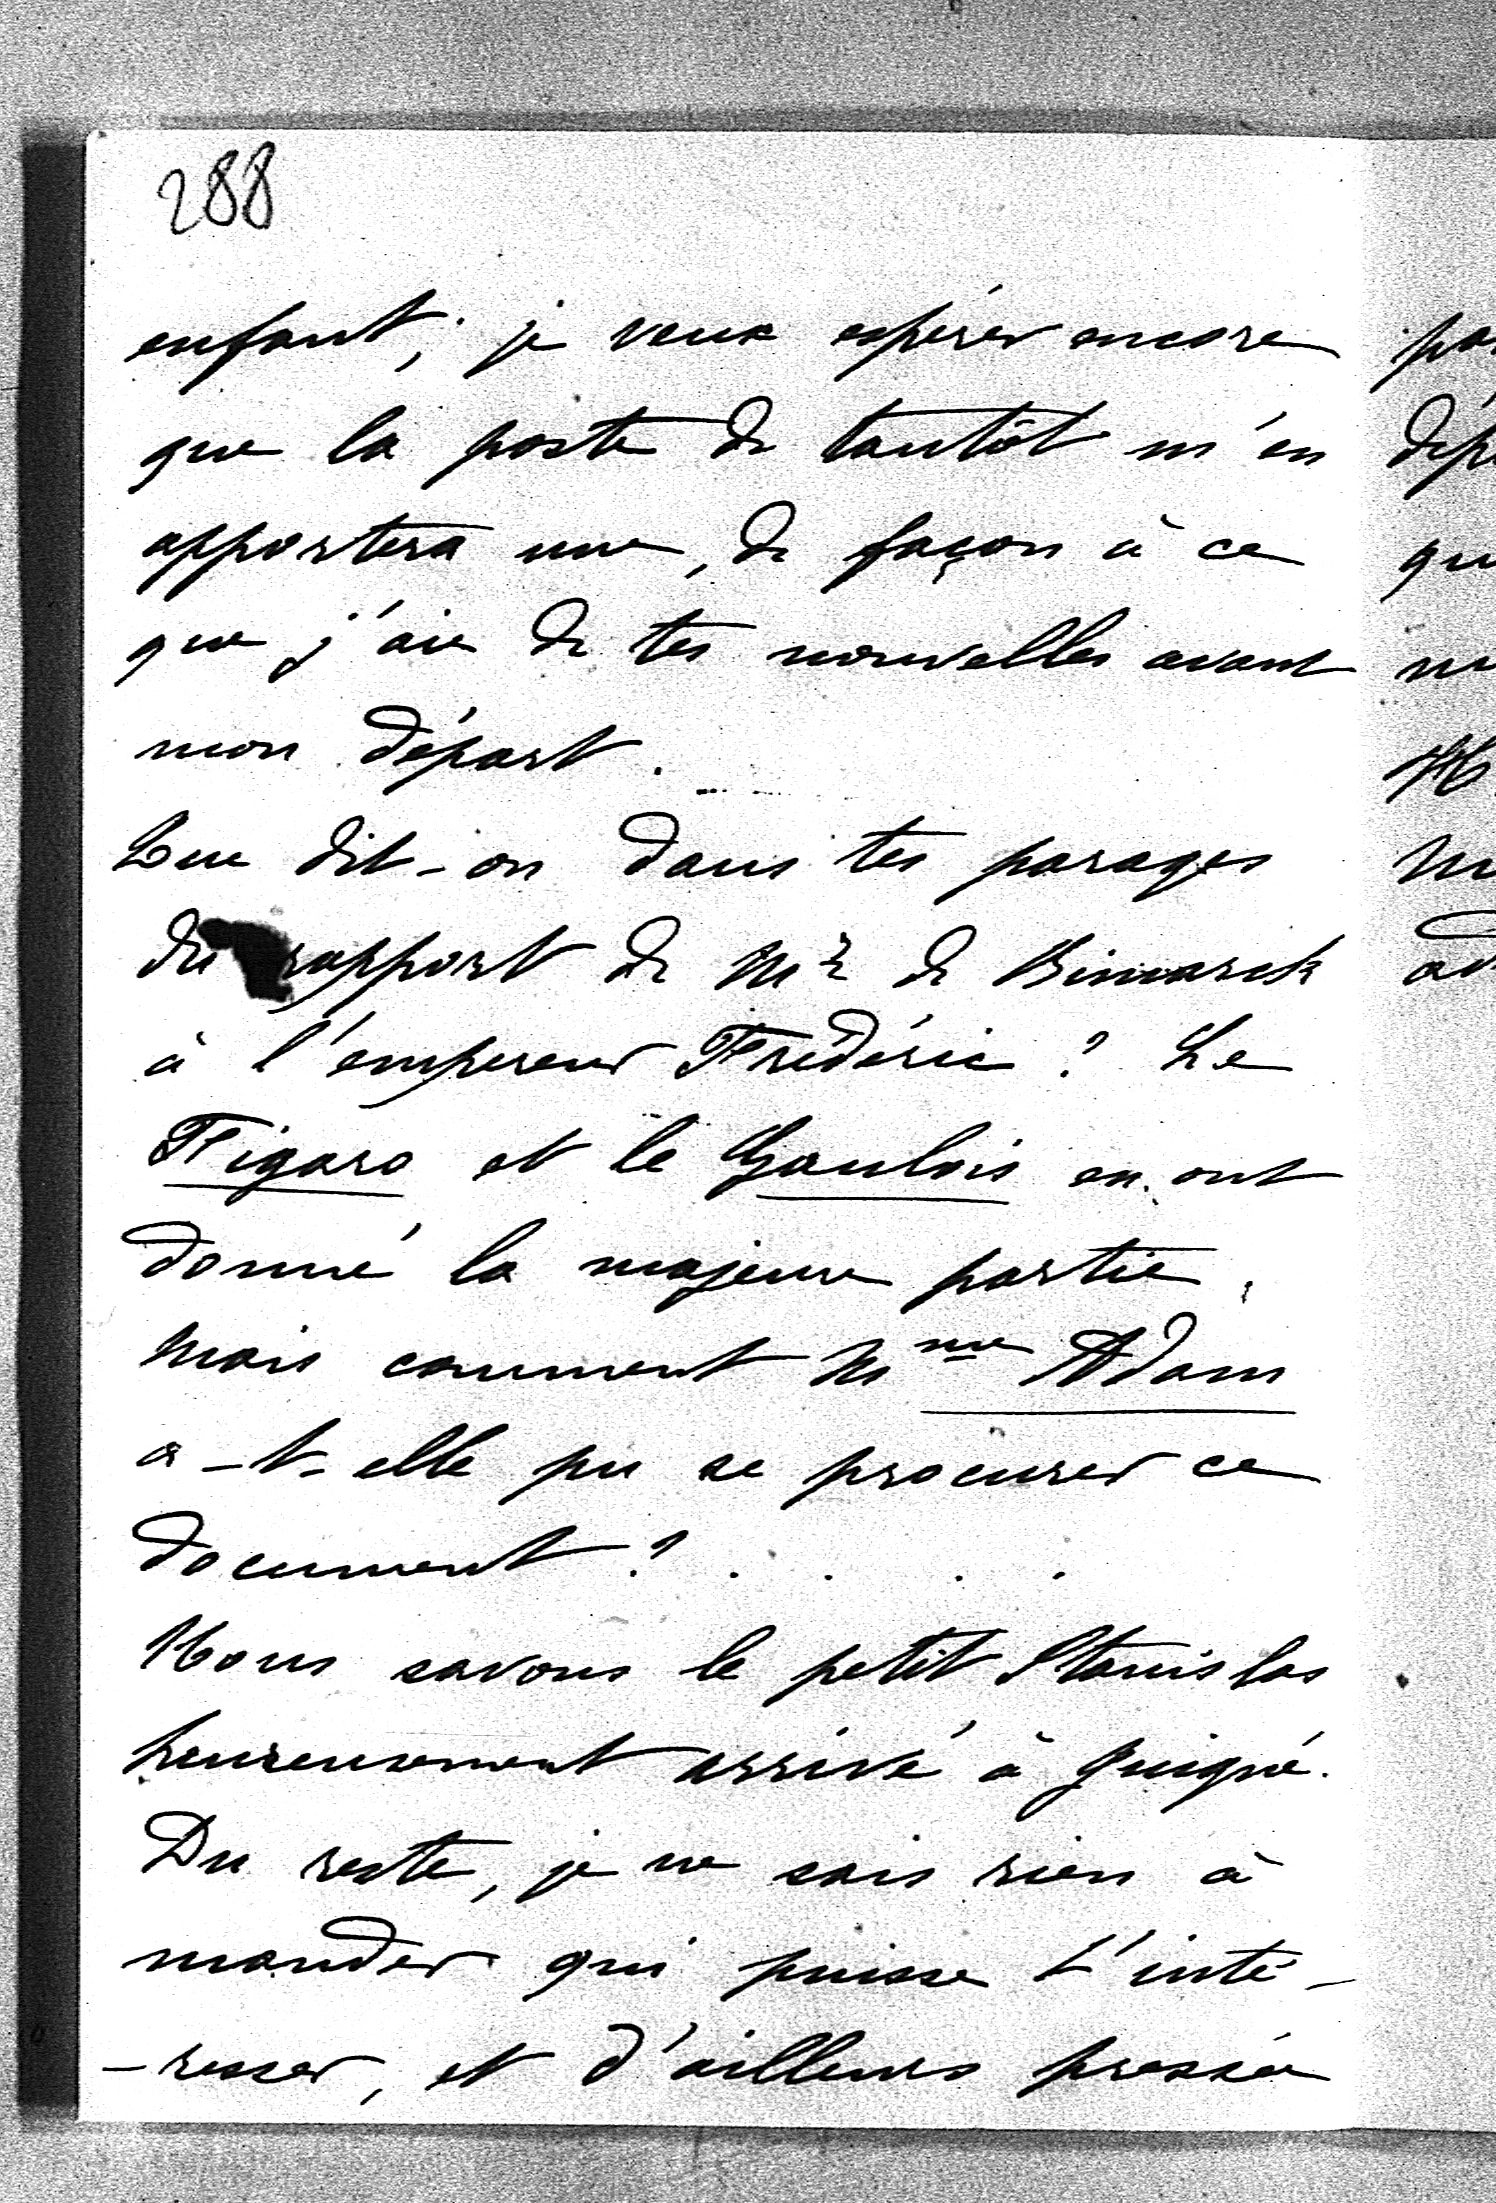 288
enfant; je veux espérer encore
que la poste de tantôt m'en
apportera une, de façon à ce
que j'aie de tes nouvelles avant
mon départ.
Que dit-on dans tes parages
du rapport de Mr de Bismarck
à l'empereur Frédéric? Le
Figaro et le Gaulois en ont
donné la majeure partie,
mais comment Mme Adam
a-t-elle pu se procurer ce
document? . . . .
Nous savons le petit Stanislas
heureusement arrivé à Juigné.
Du reste, je ne sais rien à
mander qui puisse t'inté-
-resser, et d'ailleurs pressée